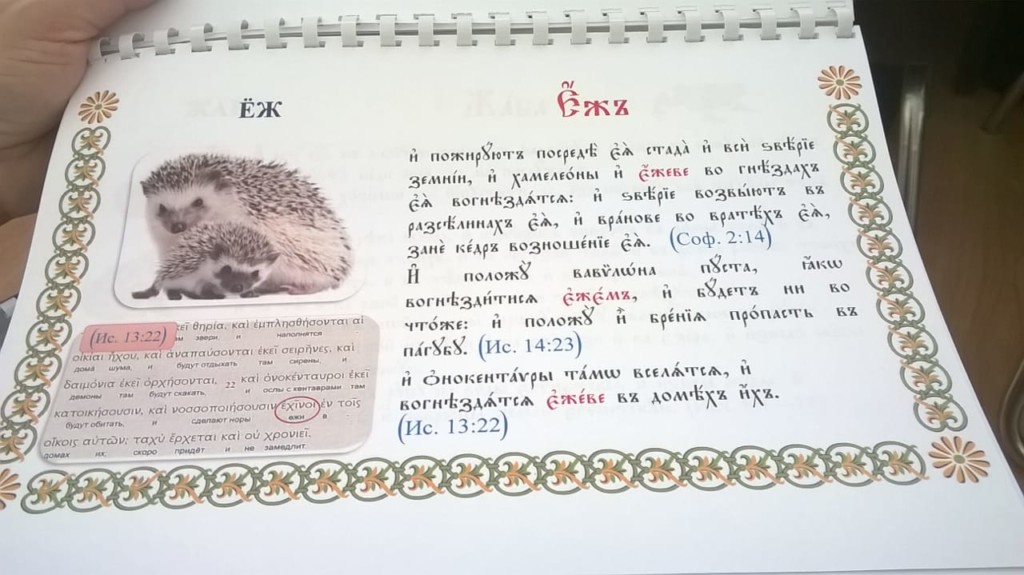 ЁЖ
Є҆́жъ
и҆ пожирꙋ́ютъ посредѣ̀ є҆ѧ̀ стада̀ и҆ всѝ ѕвѣ́рїе
земні́и, и҆ хамелео́ны и҆ є҆́жеве во гнѣ́здахъ
є҆ѧ̀ вогнѣздѧ́тсѧ: и҆ ѕвѣ́рїе возвы́ютъ въ
разсѣ́линахъ є҆ѧ̀, и҆ вра́нове во вратѣ́хъ є҆ѧ̀,
занѐ ке́дръ возноше́нїе є҆ѧ̀. (Соф. 2:14)
И҆ положꙋ̀ вавѷлѡ́на пꙋ́ста, ꙗ҆́кѡ
вогнѣзди́тисѧ є҆жє́мъ, и҆ бꙋ́детъ ни во
что́же: и҆ положꙋ̀ и҆̀ бре́нїѧ про́пасть въ
па́гꙋбꙋ. (Ис. 14:23)
и҆ ѻ҆нокента́ѵры та́мѡ вселѧ́тсѧ, и҆
вогнѣздѧ́тсѧ є҆же́ве въ домѣ́хъ и҆́хъ.
(Ис. 13:22)
(Ис. 13:22) ἐκεῖ θηρία, καὶ ἐμπλησθήσονται αἱ
звери, и наполнятся
οἰκίαι ἤχου, καὶ ἀναπαύσονται ἐκεῖ σειρῆνες, καὶ
дома шума, и будут отдыхать там сирены, и
δαιμόνια ἐκεῖ ὀρχήσονται, 22 καὶ ὀνοκένταυροι ἐκεῖ
демоны там будут скакать, и ослы с кентаврами там
κατοικήσουσιν, καὶ νοσσοποιήσουσιν ἐχῖνοι ἐν τοῖς
будут обитать, и сделают норы ежи в
οἴκοις αὐτῶν; ταχὺ ἔρχεται καὶ οὐ χρονιεῖ.
домах их; скоро придёт и не замедлит